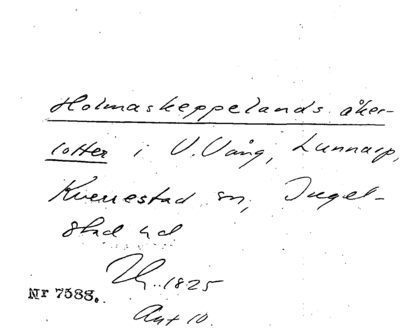 Holmaskeppelands åker-
lotter i V. Vång, Lunnarp,
Kverrestad sn, Ingel-
stad hd
1825
Nr 7588.
Ant 10.